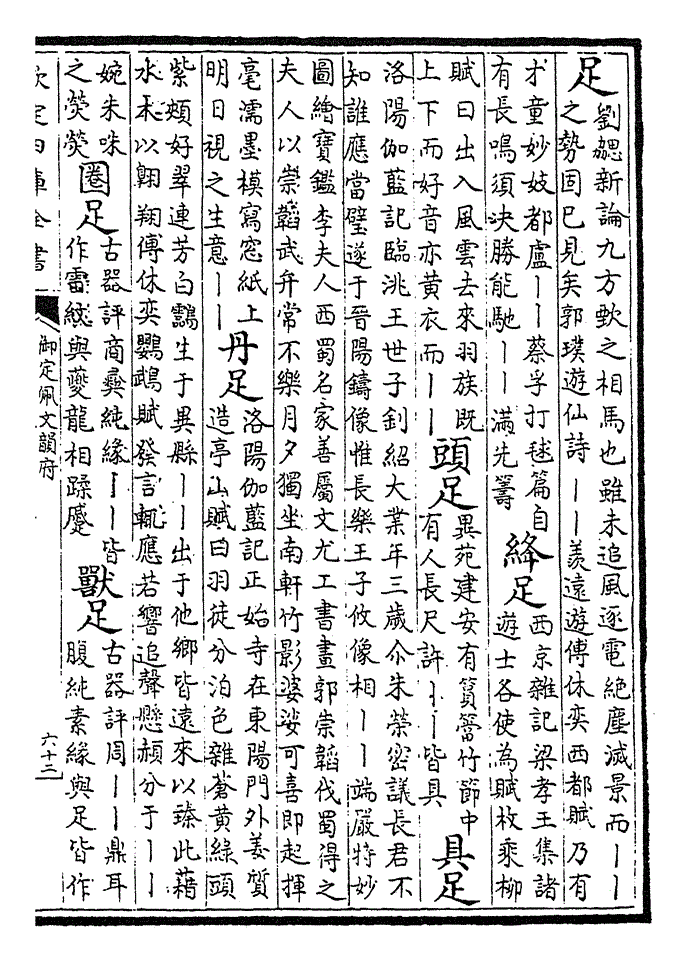 足
劉勰新論九方歅之相馬也雖未追風逐電絕塵滅景而丨丨
之勢固已見矣郭璞遊仙詩丨丨羨遠遊傅休奕西都賦乃有
才童妙妓都盧丨丨蔡孚打毬篇自
有長鳴須决勝能馳丨丨滿先籌
絳足
西京雜記梁孝王集諸
遊士各使為賦枚乘柳
賦曰出入風雲去來羽族既
上下而好音亦黄衣而丨丨
頭足
異苑建安有篔簹竹節中
有人長尺許丨丨皆具
具足
洛陽伽藍記臨洮王世子釗紹大業年三歲介朱榮密議長君不
知誰應當璧遂于晉陽鑄像惟長樂王子攸像相丨丨端嚴特妙
圖繪寶鑑李夫人西蜀名家善屬文尤工書畫郭崇韜伐蜀得之
夫人以崇韜武弁常不樂月夕獨坐南軒竹影婆娑可喜即起揮
毫濡墨模寫窓紙上
明日視之生意丨丨
丹足
洛陽伽藍記正始寺在東陽門外姜質
造亭山賦曰羽徒分泊色雜蒼黄綠頭
紫頰好翠連芳白鷳生于異縣丨丨出于他鄉皆遠來以臻此藉
水木以翺翔傅休奕鸚鵡賦發言輒應若響追聲懸頳分于丨丨
婉朱咮
之熒熒
圈足
古器評商彞純緣丨丨皆
作雷紋與夔龍相蹂躨
獸足
古器評周丨丨鼎耳
腹純素緣與足皆作
欽定四庫全書
御定佩文韻府
六十二